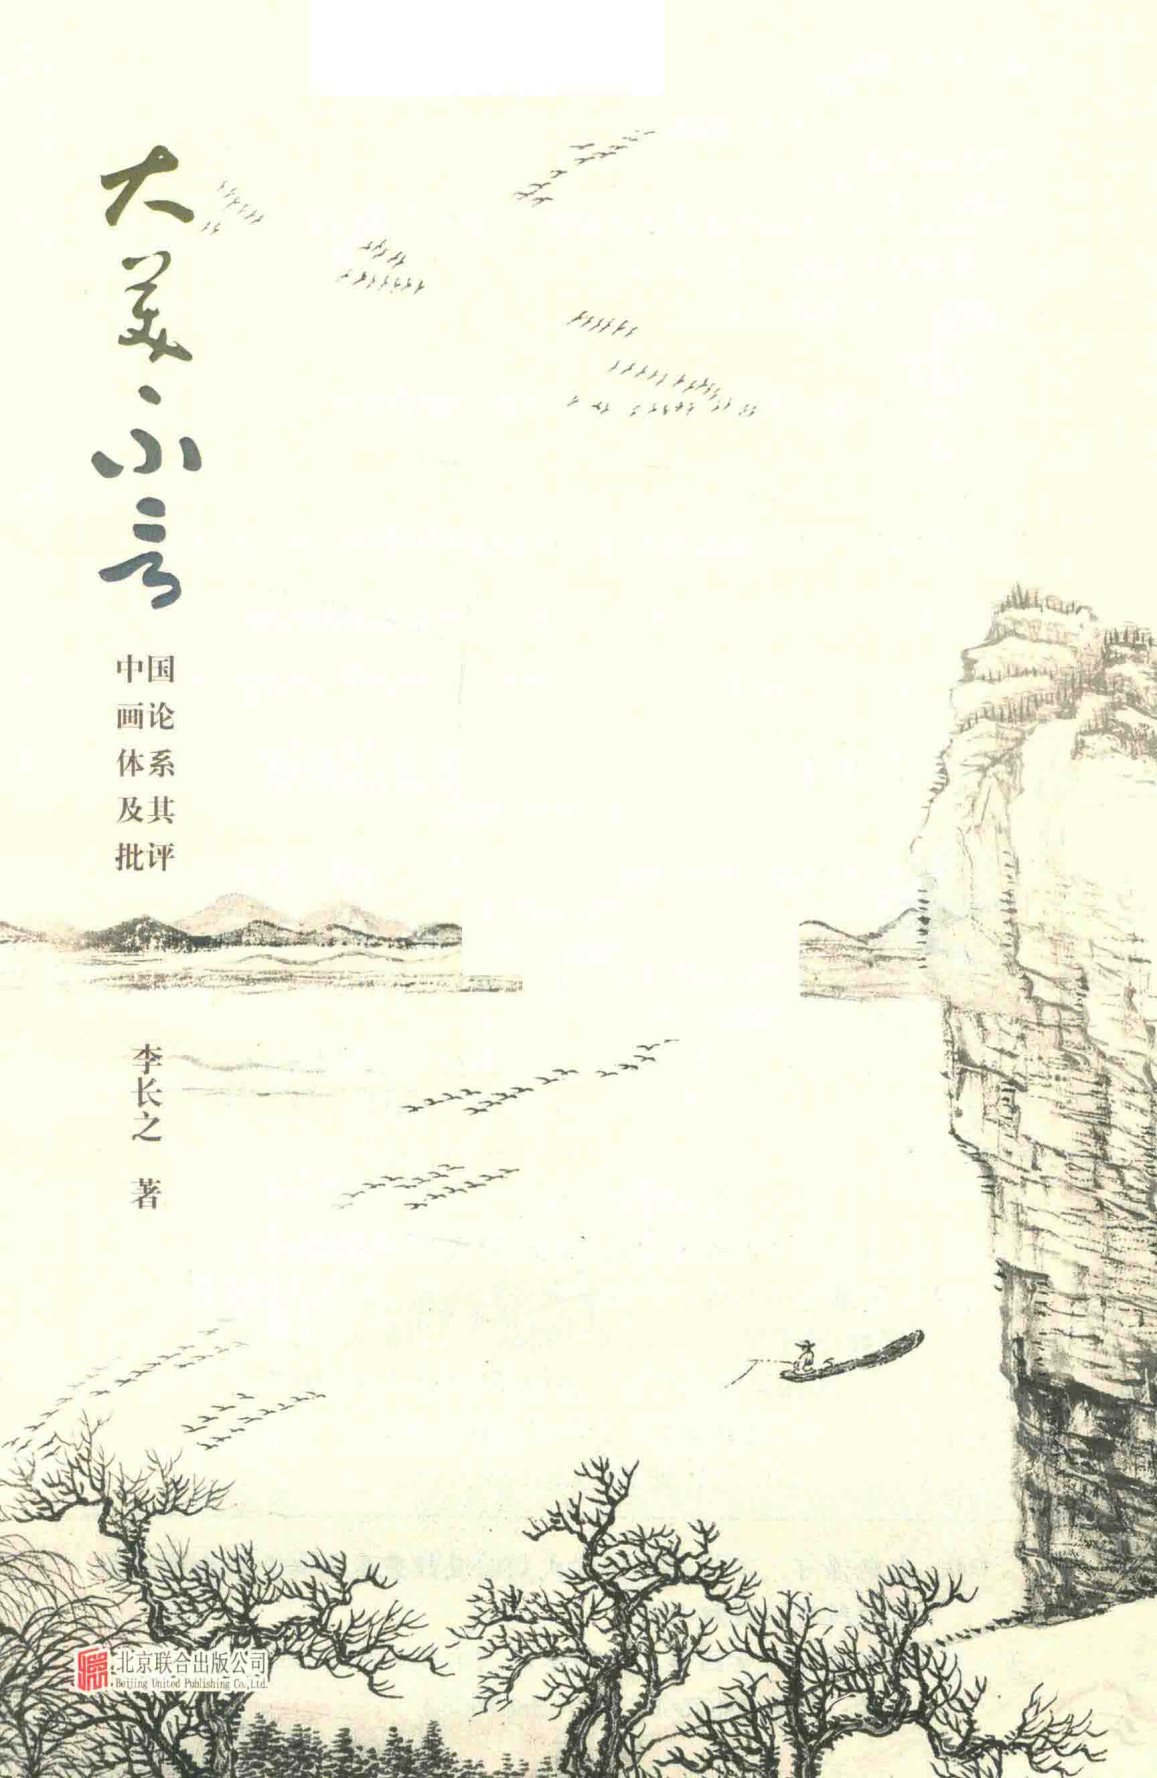 大美不言
中国
画论
体系
及其
批评
李长之 著
北京联合出版公司
Beijing United Publishing Co.,Ltd.